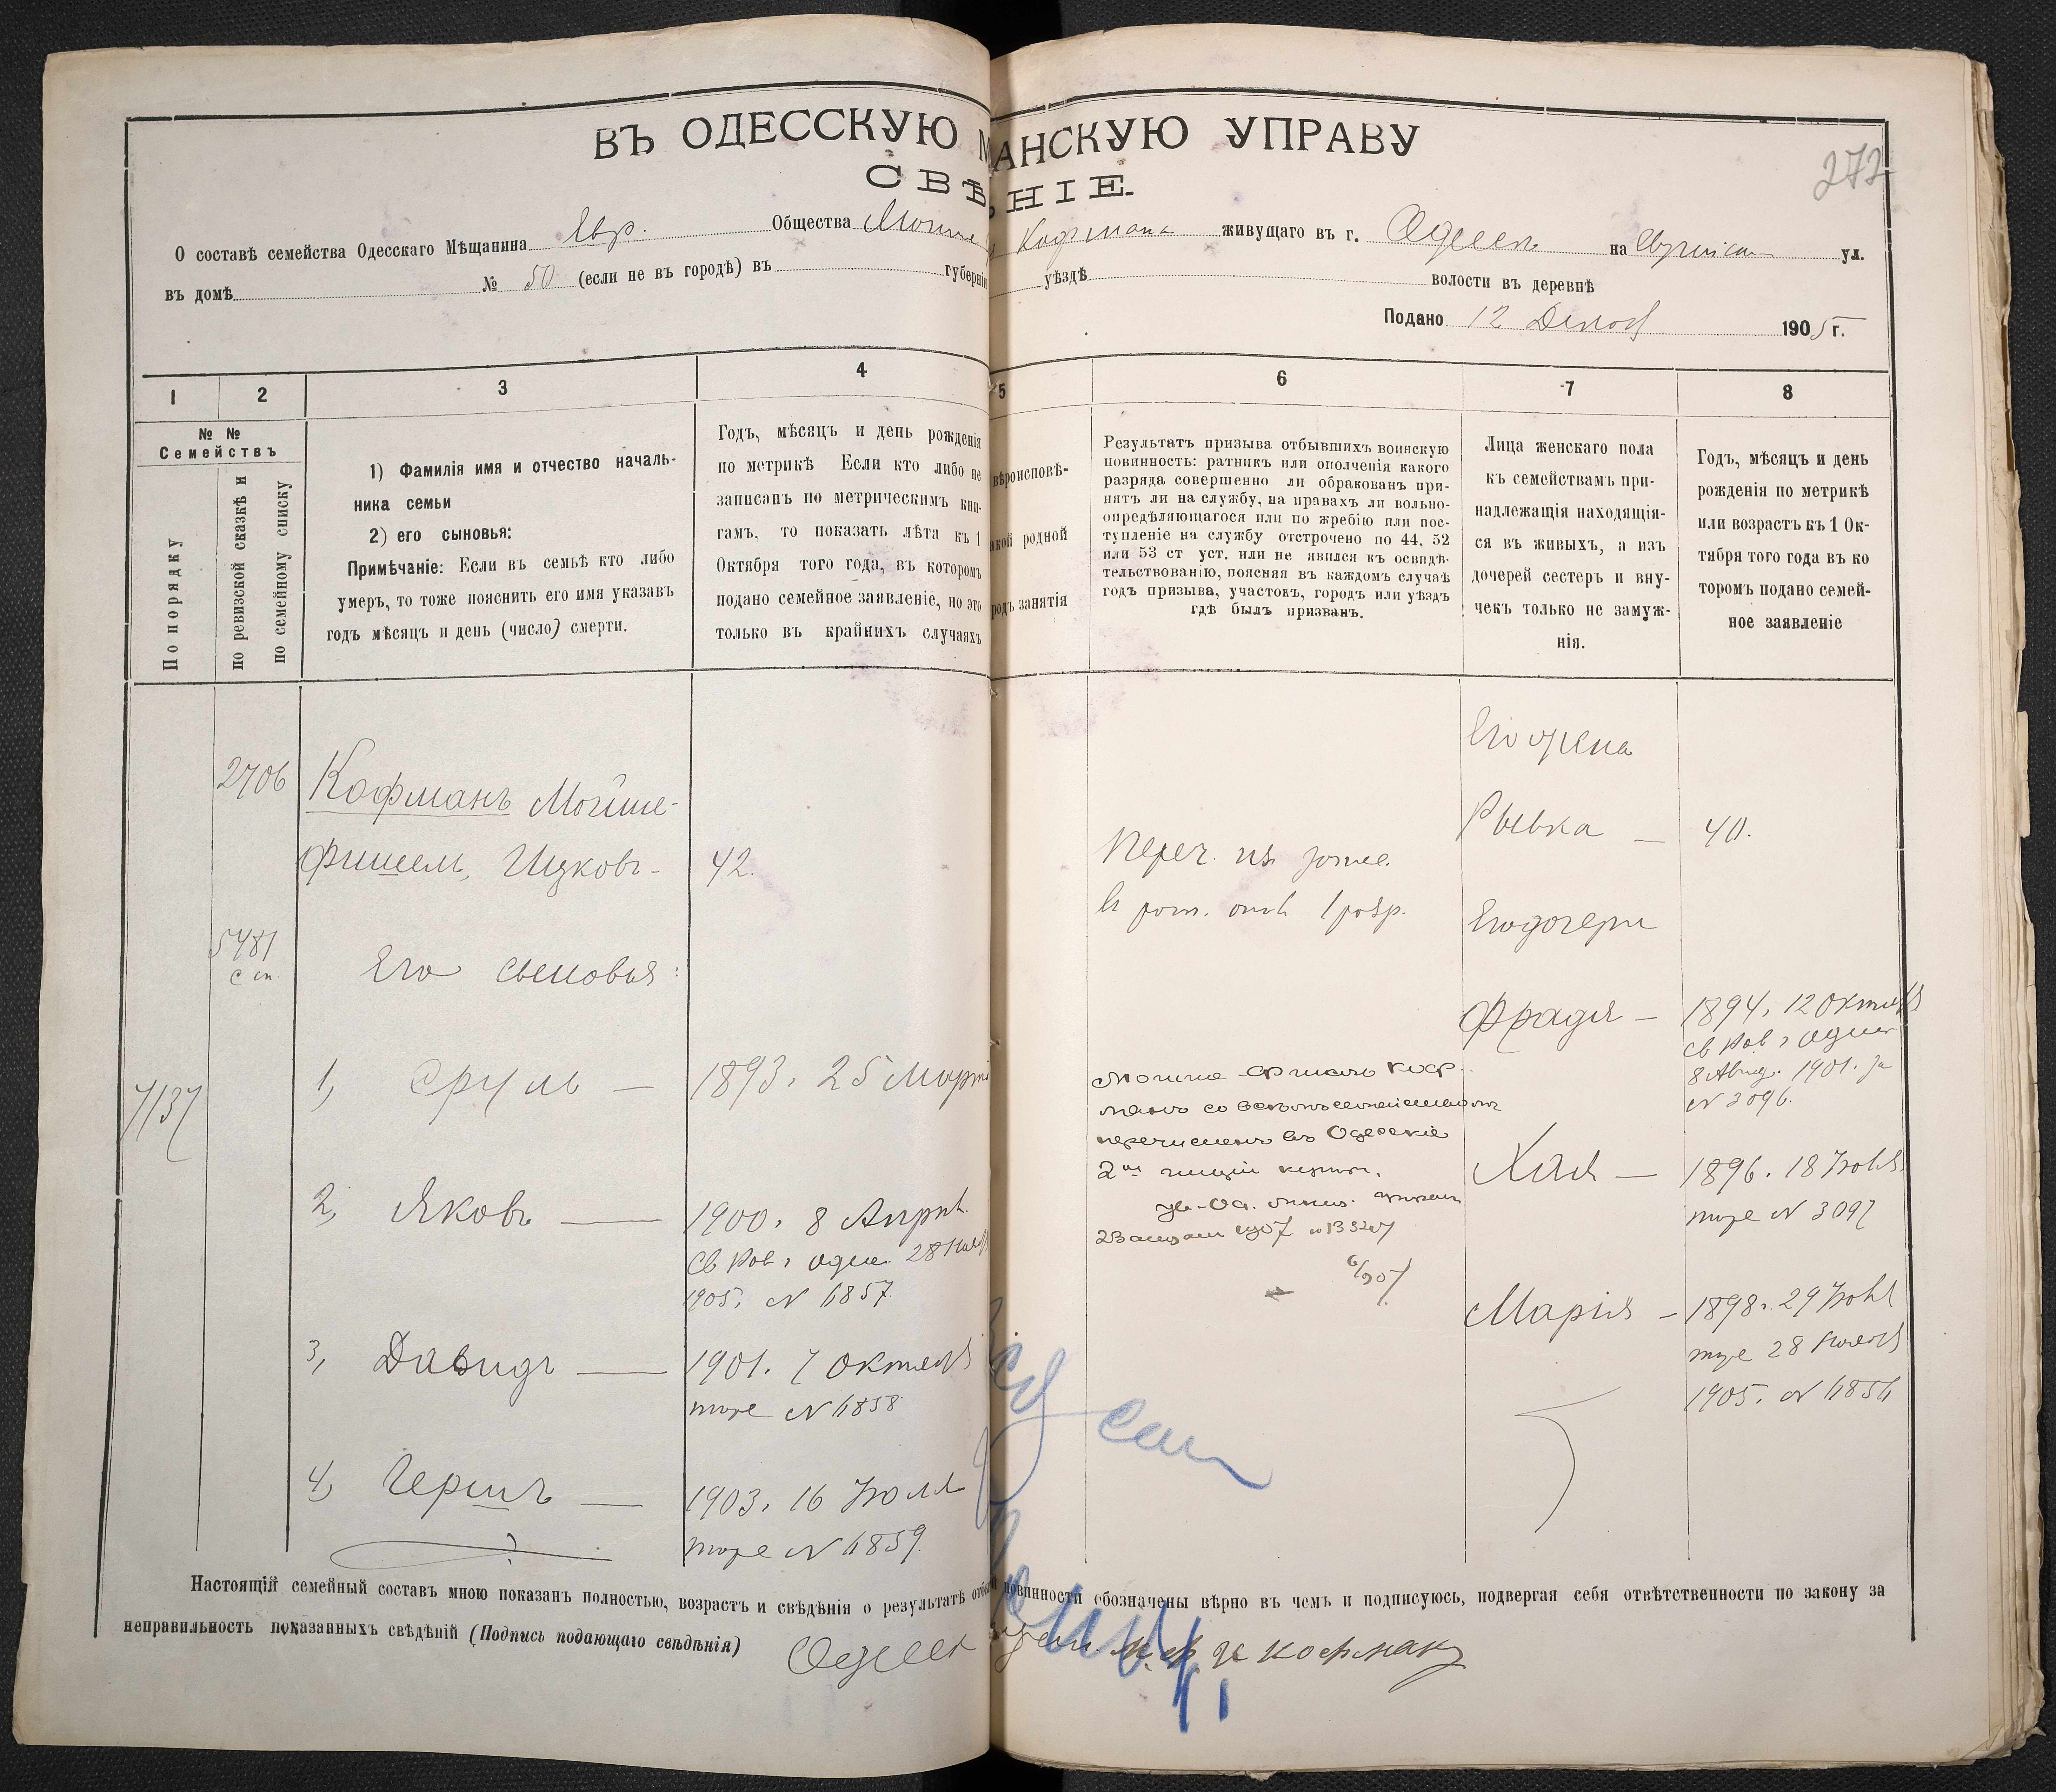 272
ВЪ ОДЕССКУЮ М АНСКУЮ УПРАВУ
СВѢ НІЕ.
О составѣ семейства Одесскаго Мѣщанина Евр. Общества Кофмана живущаго въ г. Одессѣ на ул.
въ домѣ № 50 (если не въ городѣ) въ губерніи уѣздѣ волости въ деревнѣ
Подано 12 1905 г.
1 2 3 4 5 6 7 8
№ №
Семействъ
По порядку
по ревизской сказкѣ и
по семейному списку
1) Фамилія имя и отчество началь-
ника семьи
2) его сыновья:
Примѣчаніе: Если въ семьѣ кто либо
умеръ, то тоже пояснить его имя указавъ
годъ мѣсяцъ и день (число) смерти.
Годъ, мѣсяцъ и день рожденія
по метрикѣ Если кто либо не
записанъ по метрическимъ кни-
гамъ, то показать лѣта къ 1
Октября того года, въ которомъ
подано семейное заявленіе, но это
только въ крайнихъ случаяхъ
вѣроисповѣ-
акой родной
родъ занятія
Результатъ призыва отбывшихъ воинскую
повинность: ратникъ или ополченія какого
разряда совершенно ли обракованъ при-
нятъ ли на службу, на правахъ ли вольно-
опредѣляющагося или по жребію или пос-
тупленіе на службу отстрочено по 44, 52
или 53 ст уст. или не явился къ освидѣ-
тельствованію, поясняя въ каждомъ случаѣ
годъ призыва, участокъ, городъ или уѣздъ
гдѣ былъ призванъ.
Лица женскаго пола
къ семействамъ при-
надлежащія находящія-
ся въ живыхъ, а изъ
дочерей сестеръ и вну-
чекъ только не замуж-
нія.
Годъ, мѣсяцъ и день
рожденія по метрикѣ
или возрастъ къ 1 Ок-
тября того года въ ко
торомъ подано семей-
ное заявленіе
2706
Кофманъ Мойше-
Фишель, Ицковъ-
42.
5481
с сп.
Его сыновья:
7137
1, Сруль — 1893. 25 Марта
2, Яковъ — 1900. 8 Апрѣл.
Св. Рав. Одес. 28
1905. № 6857
3, Давидъ — 1901. 7 Октября
тоже № 6858
4, Гершъ — 1903. 16 Іюля
тоже № 6859.
Переч. изъ
в рат. опол. 1 разр.
Мойше-Фишель Коф-
манъ со всѣмъ семействомъ
перечисленъ въ Одесскіе
2ой гильдіи купцы.
1907
6/907
Его жена
Рывка — 40.
Его дочери
Фрадя — 1894. 12 Октября
Св. Рав. Одес.
8 Авг. 1901. за
№ 3096.
Хая — 1896. 18 Іюля
тоже № 3097
Марія — 1898. 29 Іюля
тоже 28
1905. № 6856
Настоящій семейный составъ мною показанъ полностью, возрастъ и свѣдѣнія о результатѣ повинности обозначены вѣрно въ чемъ и подписуюсь, подвергая себя отвѣтственности по закону за
неправильность показанныхъ свѣдѣній (Подпись подающаго свѣдѣнія) Кофманъ